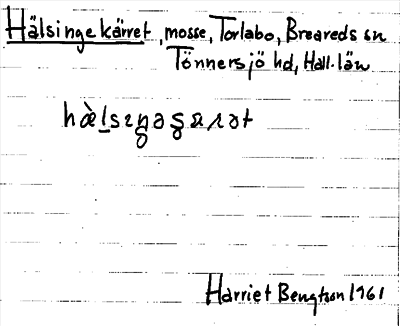 Hälsingekärret, mosse, Torlabo, Breareds sn
Tönnersjö hd, Hall. län
hæ̀lsıŋəʂäɹət
Harriet Bengtson 1961